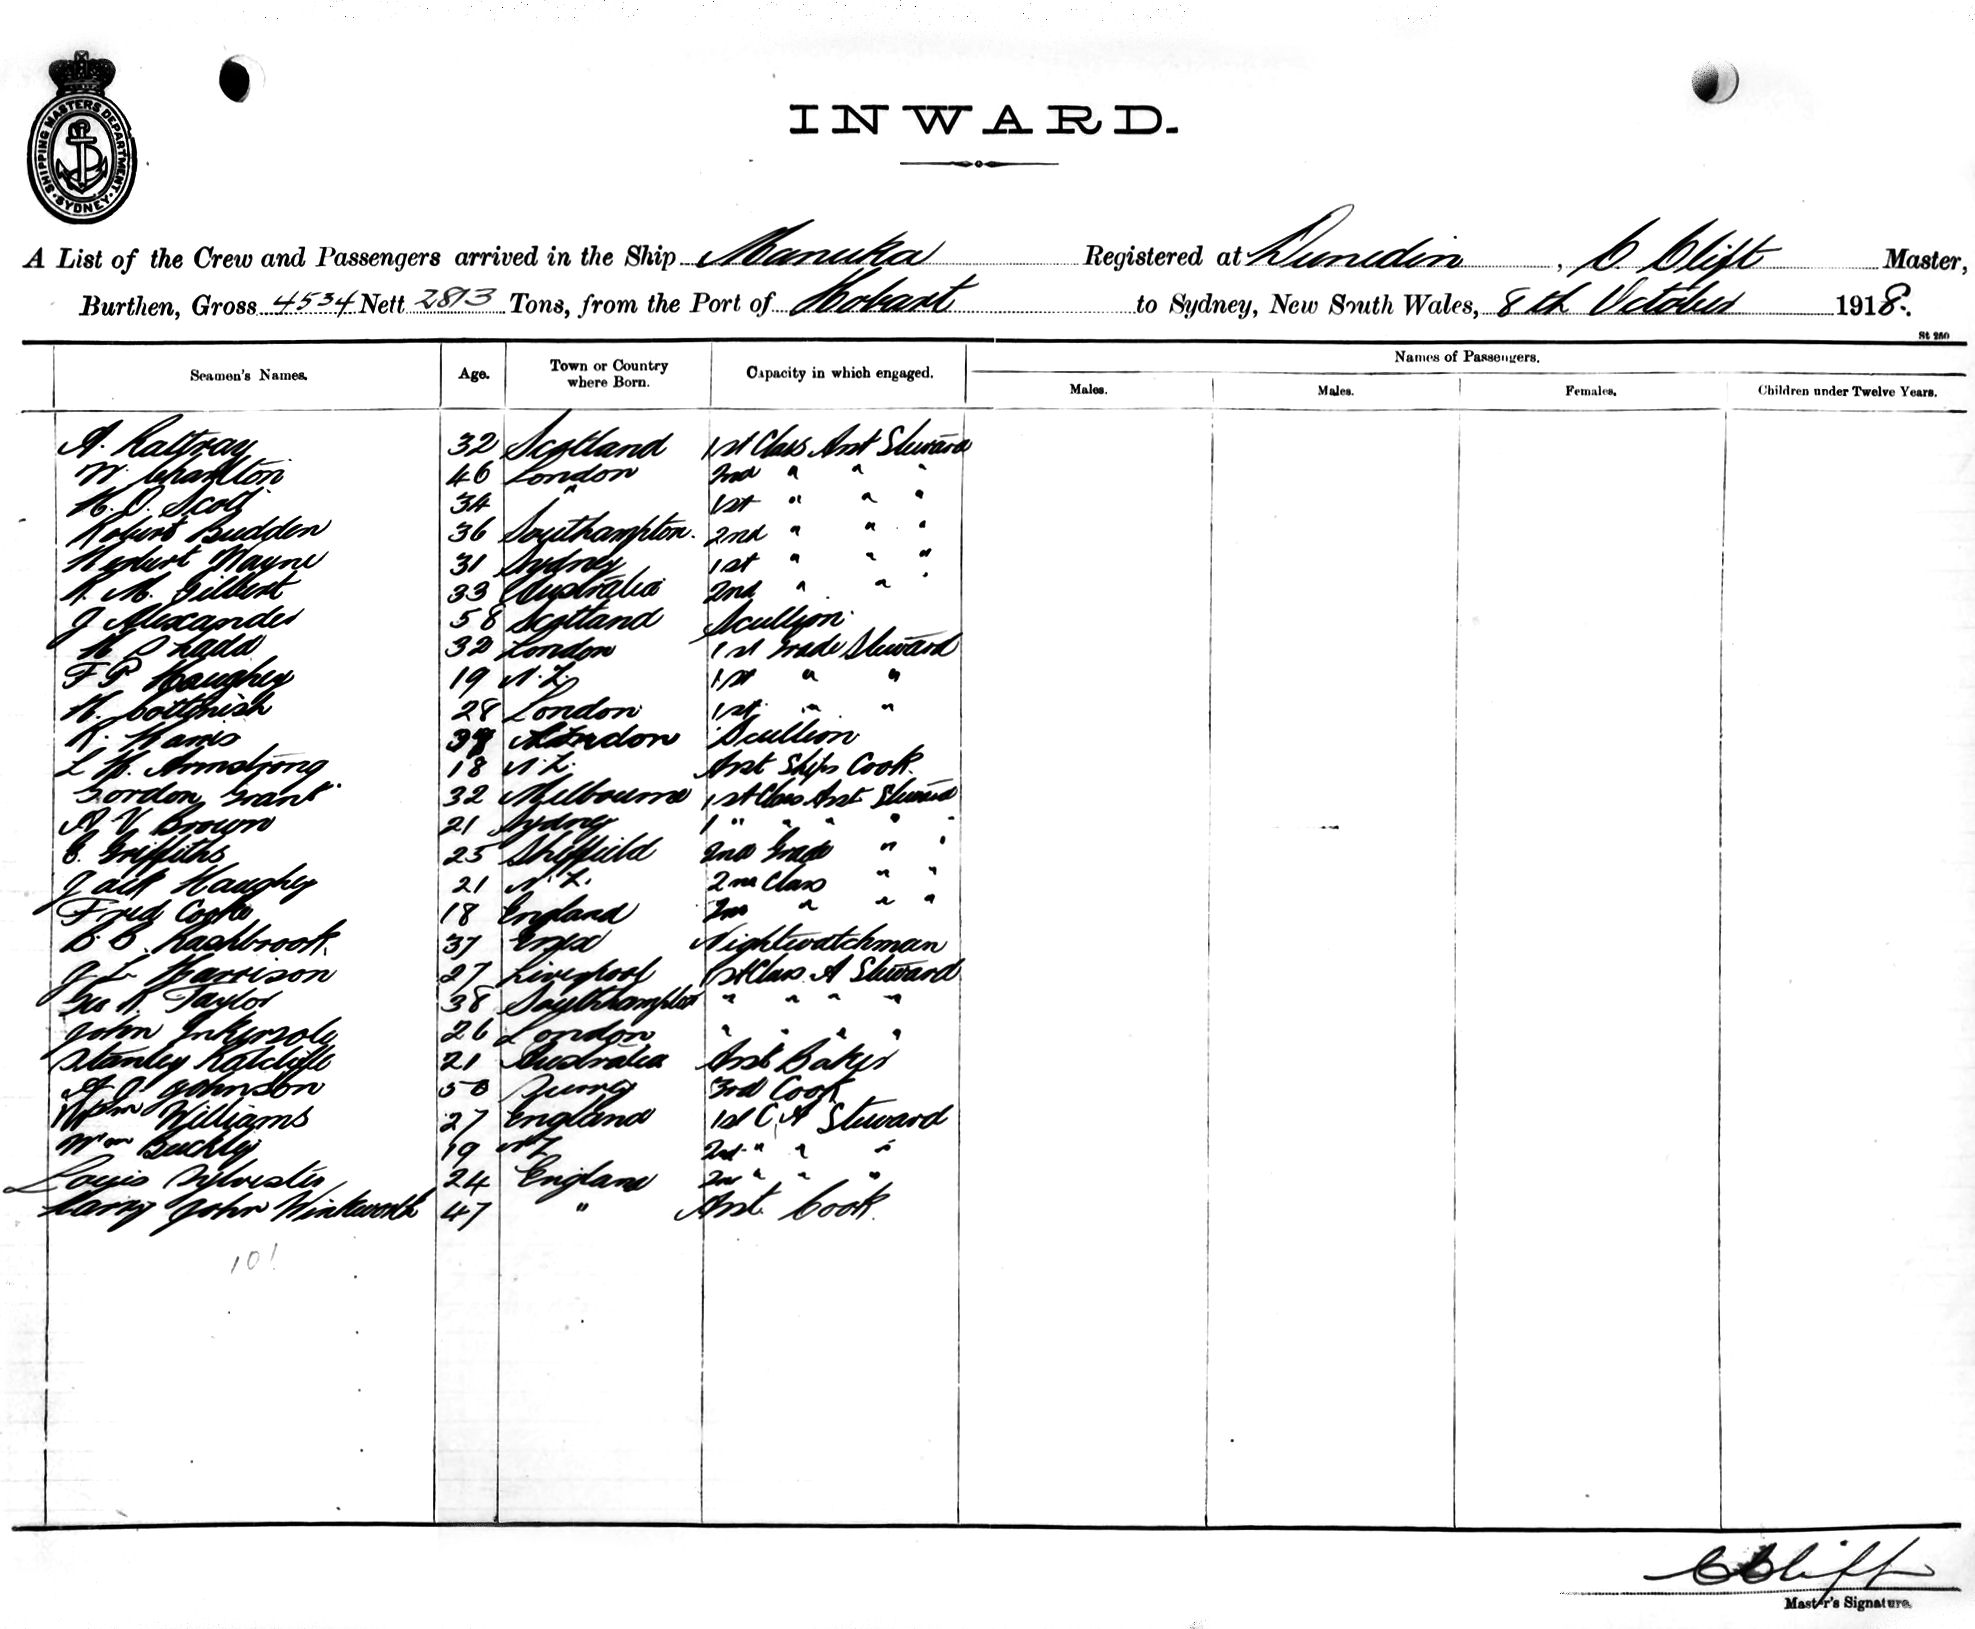 SHIPPING MASTERS DEPARTMENT
SYDNEY
INWARD.
A List of the Crew and Passengers arrived in the Ship Manuka Registered at Dunedin, C. Clift Master,
Burthen, Gross 4534 Nett 2813 Tons, from the Port of Hobart to Sydney, New South Wales, 8th October 1918.
St 250
Seamen's Names. Age. Town or Country where Born. Capacity in which engaged. Names of Passengers.
Males. Males. Females. Children under Twelve Years.
A. Rattray 32 Scotland 1st Class Asst Steward
W. Charlton 46 London 2nd " " "
H. O. Scott 34 " 1st " " "
Robert Budden 36 Southampton. 2nd " " "
Herbert Wayne 31 Sydney 1st " " "
R. M. Gilbert 33 Australia 2nd " " "
J Alexander 58 Scotland Scullion
H Ladd 32 London 1st Grade Steward
F P Haughey 19 N.Z. 1st " "
H. 28 London 1st " "
R. Harris London Scullion
L H. Armstrong 18 N.Z. Asst Ships Cook.
Gordon Grant 32 Melbourne 1st Class Asst Steward
A V Brown 21 Sydney 1 " " " "
C. Griffiths 25 Sheffield 2nd Grade " "
Jack Haughey 21 N.Z. 2nd Class " "
Fred Cooke 18 England 2nd " " "
B. B. Rashbrook. 37 Essex Nightwatchman
J L Harrison 27 Liverpool 1st Class A Steward
Geo R. Taylor 38 Southampton " " " "
John Inkersole 26 London " " " "
Stanley Ratcliffe 21 Australia Asst Baker
A J Johnson 50 Surrey 3rd Cook
Wm Williams 27 England 1st C A Steward
Wm Buckley 19 NZ 2nd " " "
Louis Sylvester 24 England 2nd " " "
Harry John Winkworth 47 " Asst. Cook.
101
C Clift
Master's Signature.